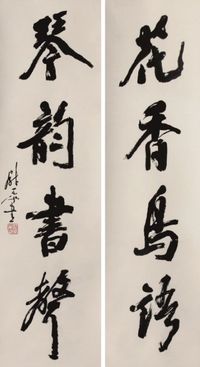 花香鳥語
琴韵書聲